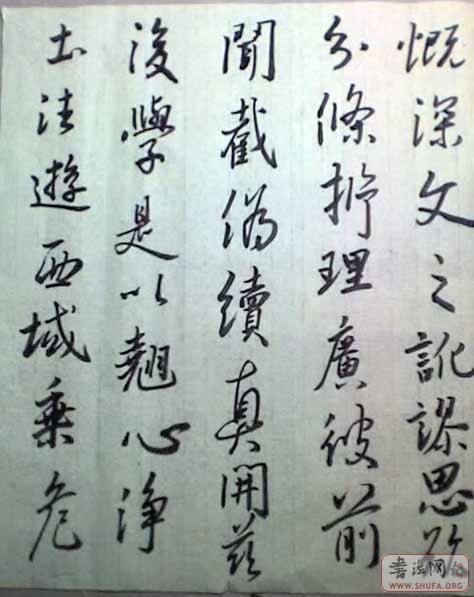 慨深文之訛謬思欲
分條析理廣彼前
聞截偽續真開茲
後學是以翹心淨
土往遊西域乘危
書法网
WWW.SHUFA.ORG